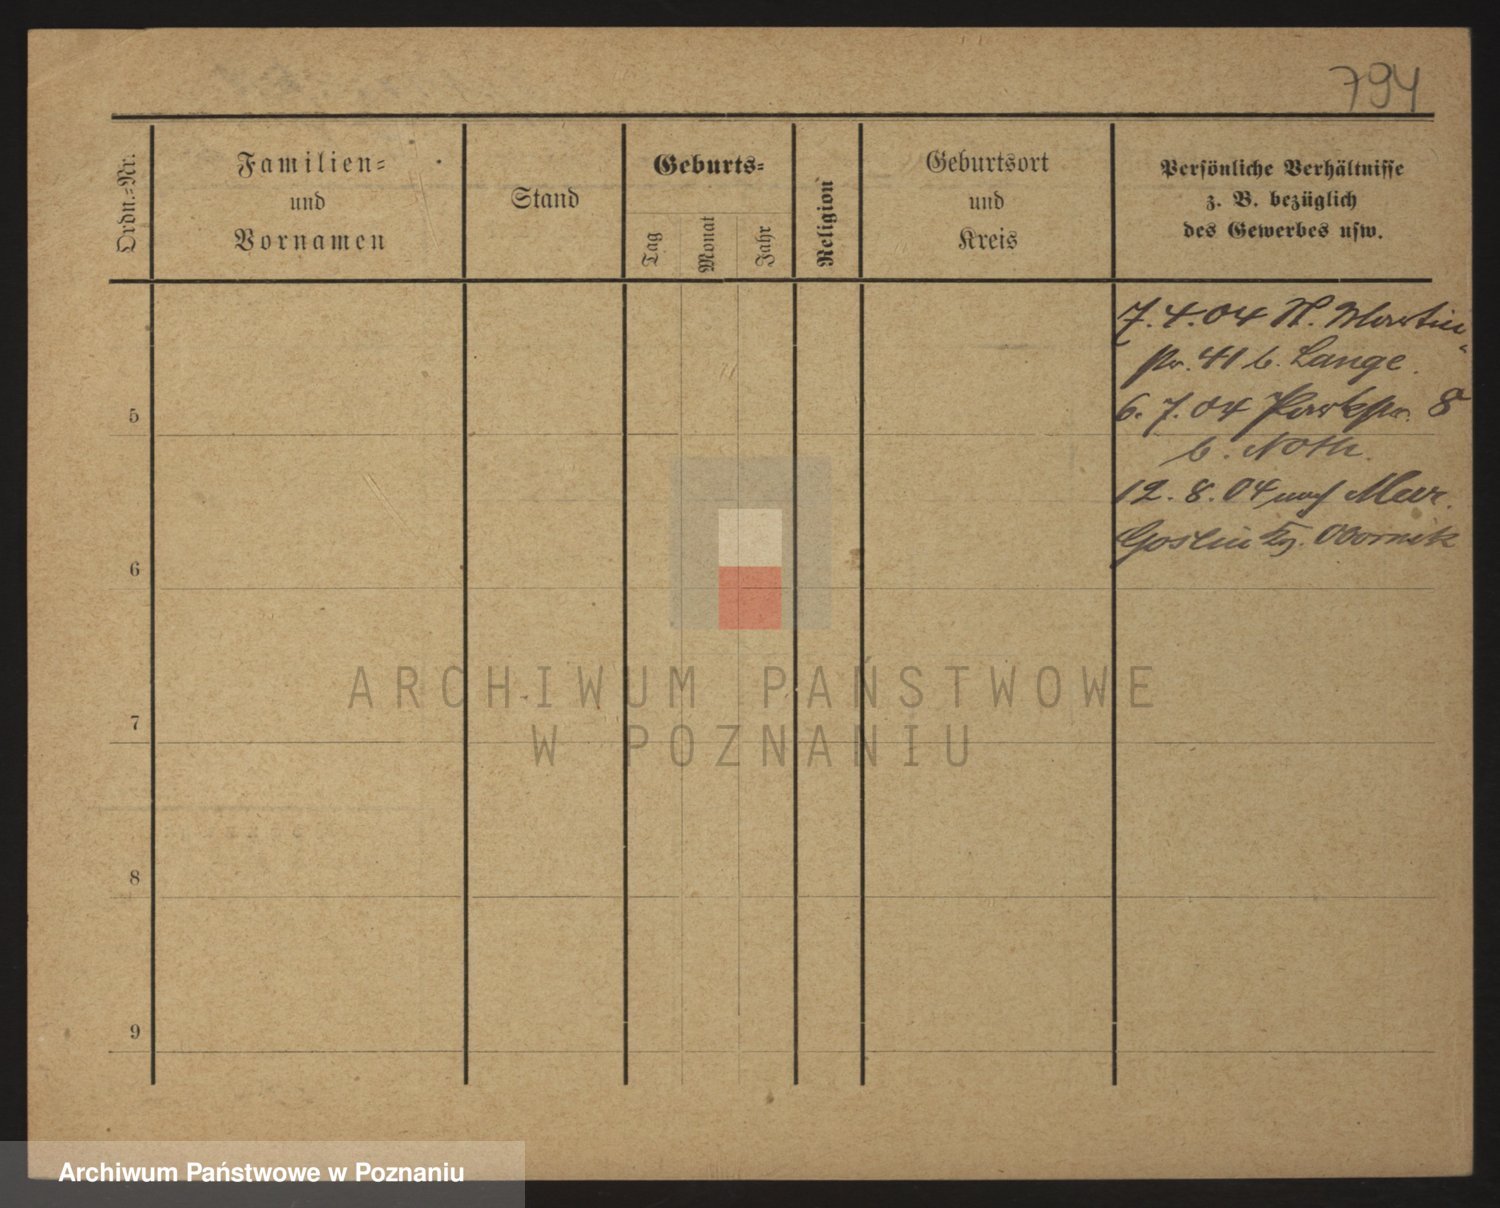 794
Ordn.-Nr.
Familien-
und
Vornamen
Stand
Geburts-
Tag
Monat
Jahr
Religion
Geburtsort
und
Kreis
Persönliche Verhältnisse
z. B. bezüglich
des Gewerbes usw.
7.4.04 St. Martin-
str. 41 b. Lange.
5
6.7.04 Parkstr. 8
b. Noth.
12.8.04 nach Mur.
Goslin Kr. Obornik
6
7
8
9
ARCHIWUM PAŃSTWOWE
W POZNANIU
Archiwum Państwowe w Poznaniu